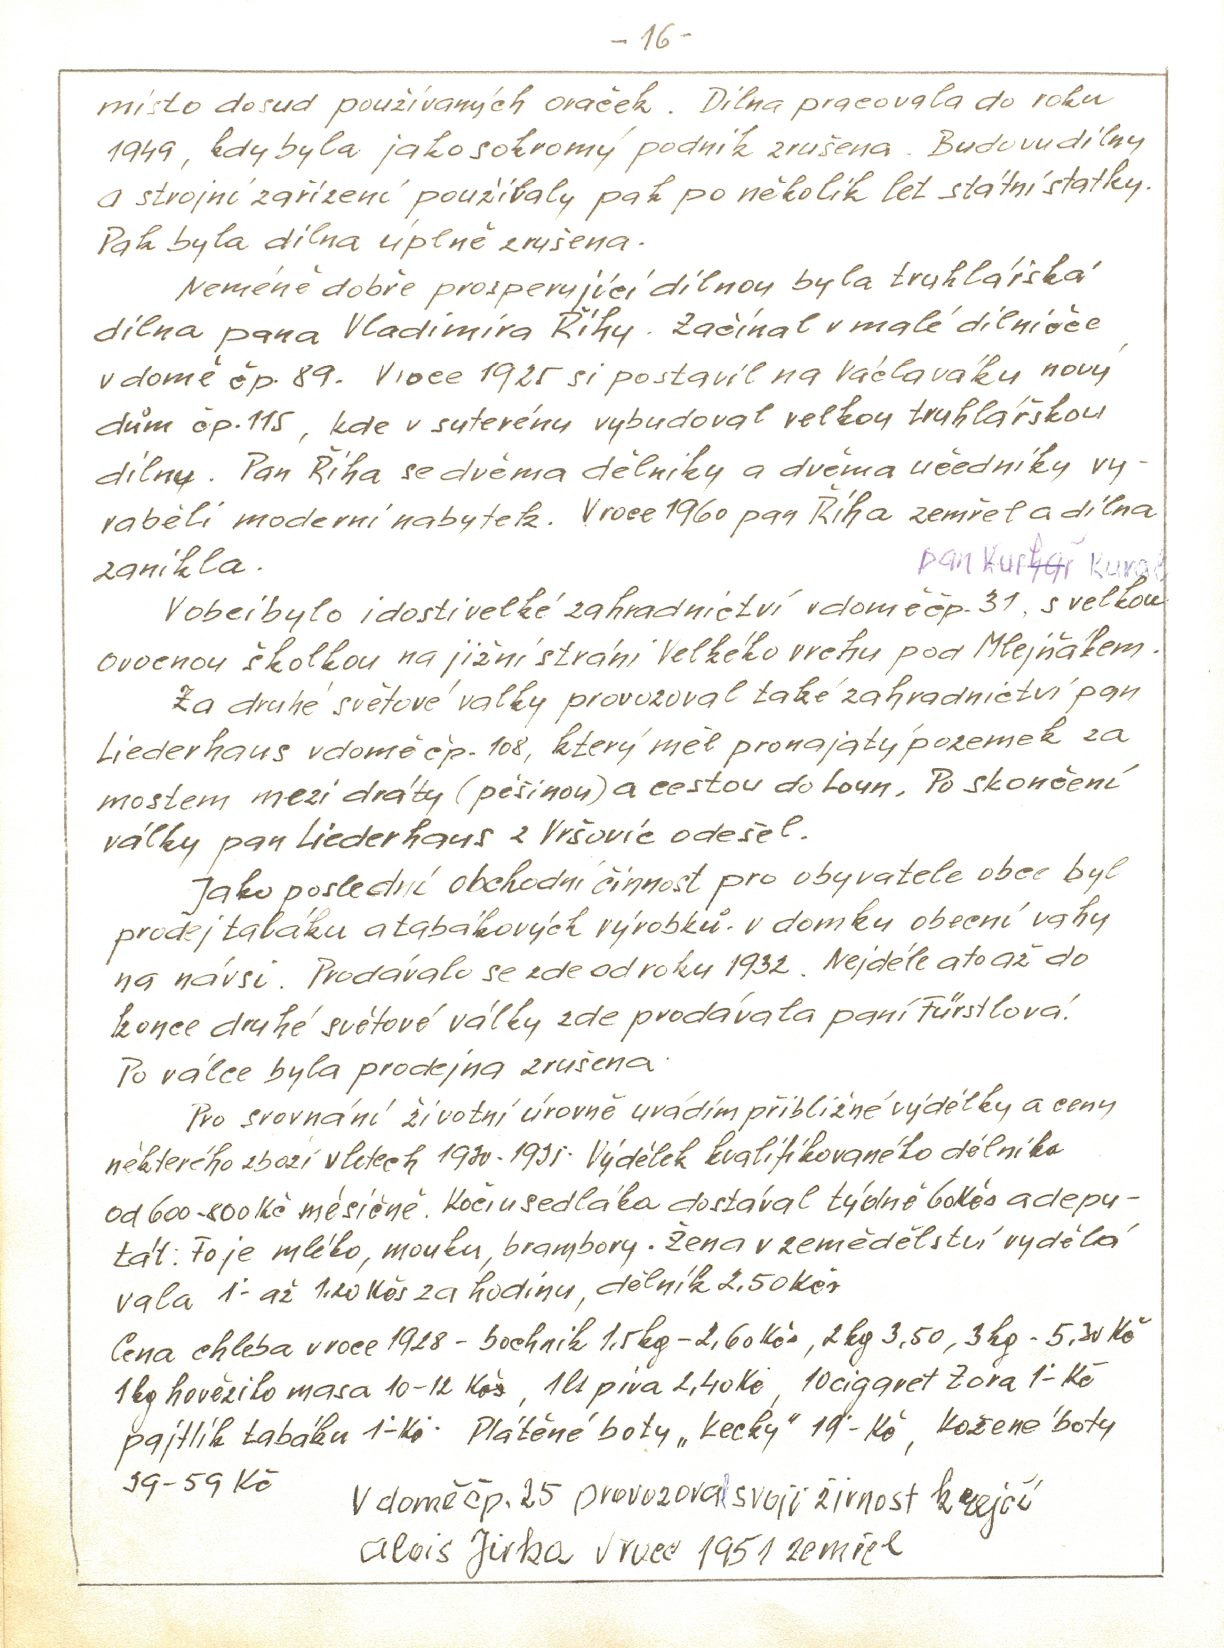 - 16 -
místo dosud používaných oraček. Dílna pracovala do roku
1949, kdy byla jako sokromý podnik zrušena. Budovu dílny
a strojní zařízení používaly pak po několik let státní statky.
Pak byla dílna úplně zrušena.
Neméně dobře prosperující dílnou byla truhlářská
dílna pana Vladimíra Říhy. Začínal v malé dílničce
v domě čp. 89. V roce 1925 si postavil na Václaváku nový
dům čp. 115, kde v suterénu vybudoval velkou truhlářskou
dílny. Pan Říha se dvěma dělníky a dvěma učedníky vy-
raběli moderní nabytek. V roce 1960 pan Říha zemřel a dílna
zanikla.
pan Kuchař
V obci bylo i dosti velké zahradnictví v domě čp. 31, s velkou
ovocnou školkou na jižní stráni Velkého vrchu pod Mlejňákem.
Za druhé světové valky provozoval také zahradnictví pan
Liederhaus v domě čp. 108, který měl pronajatý pozemek za
mostem mezi dráty (pěšinou) a cestou do Loun. Po skončení
války pan Liederhaus z Vršovic odešel.
Jako poslední obchodní činnost pro obyvatele obce byl
prodej tabáku a tabákových výrobků. v domku obecní vahy
na návsi. Prodávalo se zde od roku 1932. Nejdéle a to až do
konce druhé světové války zde prodávala paní Fürstlová.
Po válce byla prodejna zrušena.
Pro srovnání životní úrovně uvádím přibližné výdělky a ceny
některého zboží v letech 1930-1935. Výdělek kvalifikovaného dělníka
od 600-800 Kč měsíčně. Kočí u sedláka dostával týdně 60 Kčs a depu-
tát: To je mléko, mouku, brambory. Žena v zemědělství vydělá
vala 1- až 1.20 Kčs za hodinu, dělník 2.50 Kčs
Cena chleba v roce 1928 - bochník 1,5kg - 2,60 Kčs, 2kg 3,50, 3kg - 5,30 Kč
1kg hovězího masa 10-12 Kčs, 1lt piva 2,40 Kč, 10 cigaret Zora 1- Kč
pajtlík tabáku 1- Kč. Plátěné boty „kecky" 19- Kč, kožené boty
39-59 Kč
V domě čp. 25 provozoval svoji živnost krejčí
Alois Jirka v roce 1951 zemřel